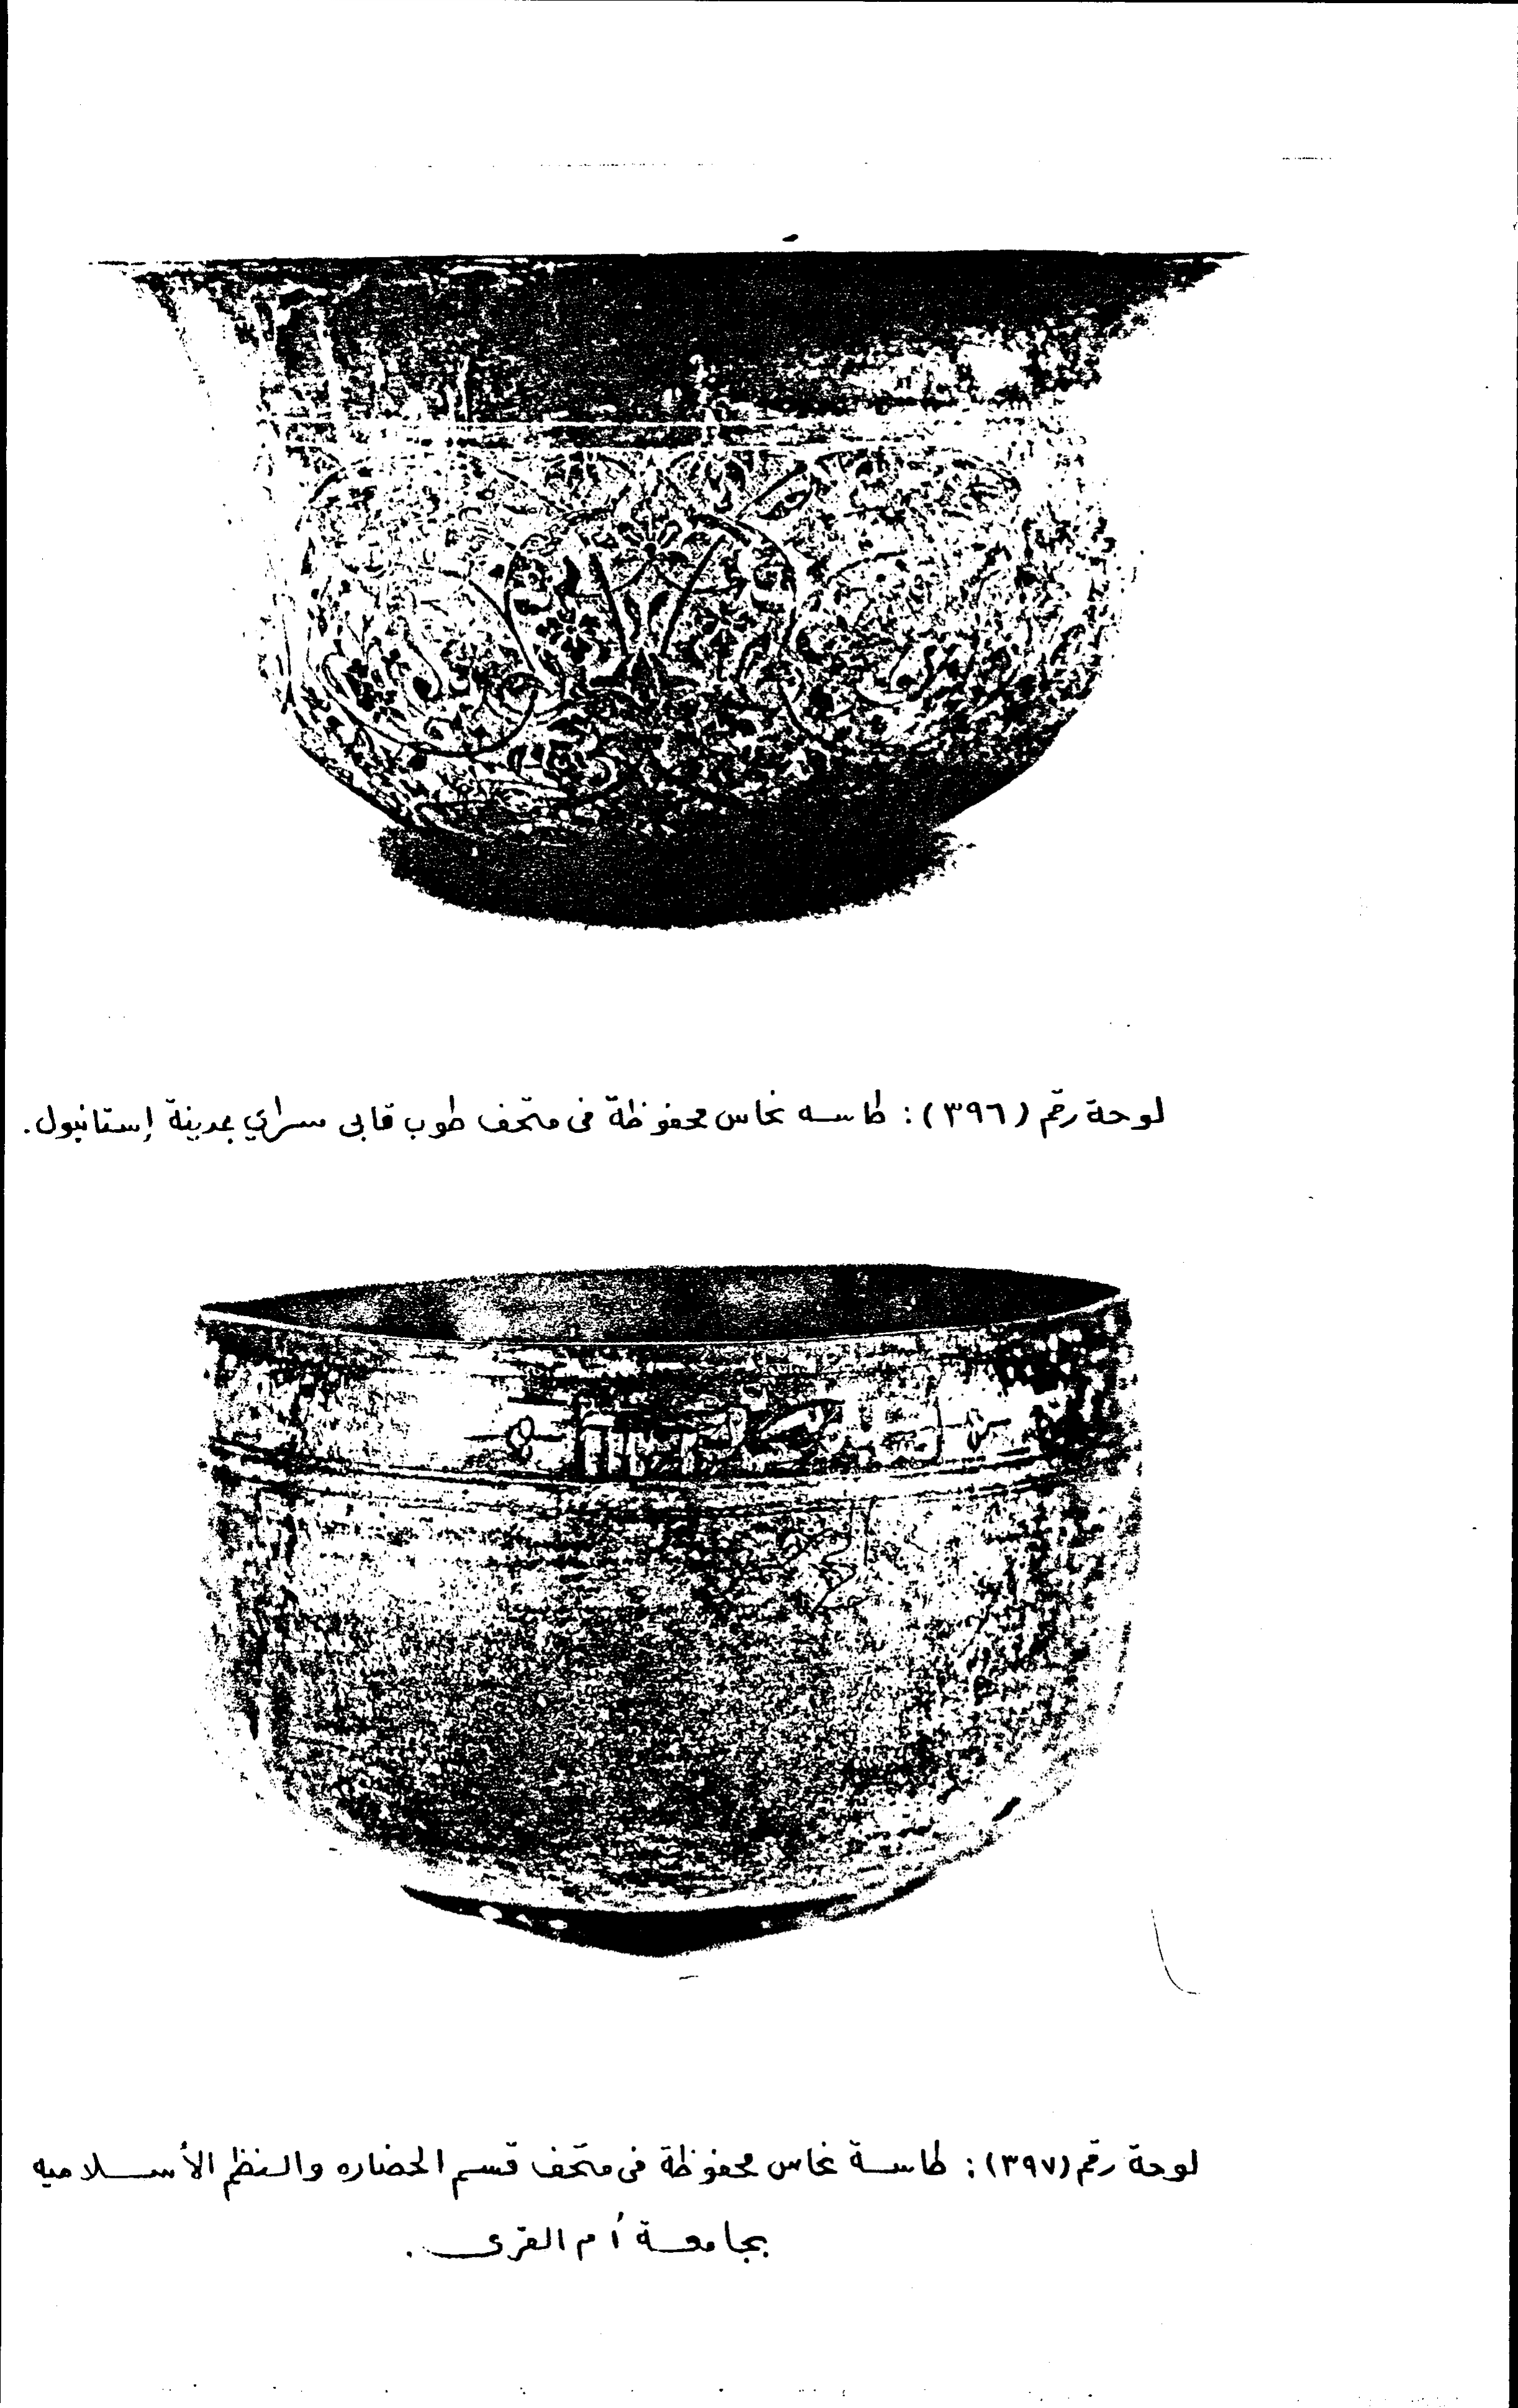 لوحة رقم (٣٩٦) : طاسه نحاس محفوظة فى متحف طوب قابى سراي بمدينة إستانبول .
لوحة رقم (٣٩٧) : طاسة نحاس محفوظة فى متحف قسم الحضاره والنظم الأسلاميه
بجامعة أم القرى .